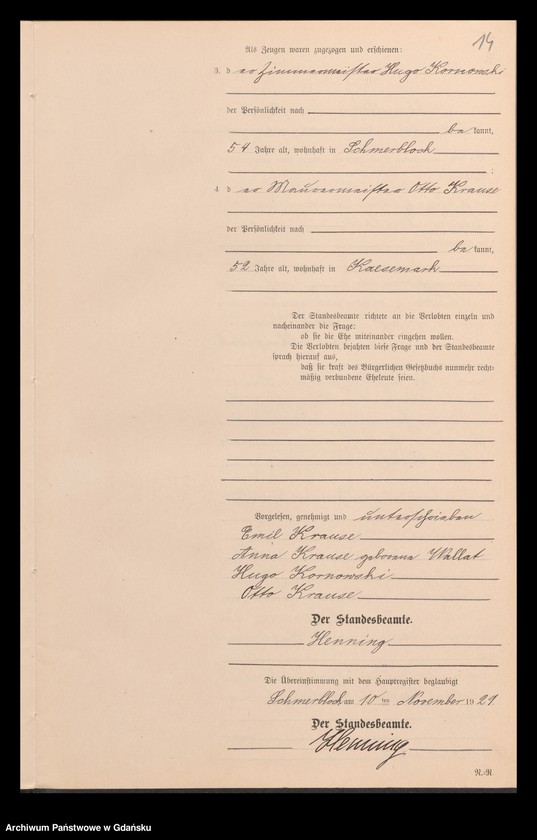 14
Als Zeugen waren zugezogen und erschienen:
3. der Zimmermeister Hugo Kornowski
der Persönlichkeit nach
bekannt,
54 Jahre alt, wohnhaft in Schmerbloch
;
4. der Maurermeister Otto Krause
der Persönlichkeit nach
bekannt,
52 Jahre alt, wohnhaft in Kaesemark
Der Standesbeamte richtete an die Verlobten einzeln und
nacheinander die Frage:
ob sie die Ehe miteinander eingehen wollen.
Die Verlobten bejahten diese Frage und der Standesbeamte
sprach hierauf aus,
daß sie kraft des Bürgerlichen Gesetzbuchs nunmehr recht-
mäßig verbundene Eheleute seien.
Vorgelesen, genehmigt und unterschrieben
Emil Krause
Anna Krause geborene Wallat
Hugo Kornowski
Otto Krause
Der Standesbeamte.
Henning
Die Übereinstimmung mit dem Hauptregister beglaubigt
Schmerbloch, am 10 ten November 1921.
Der Standesbeamte.
Henning
N.-R.
Archiwum Państwowe w Gdańsku